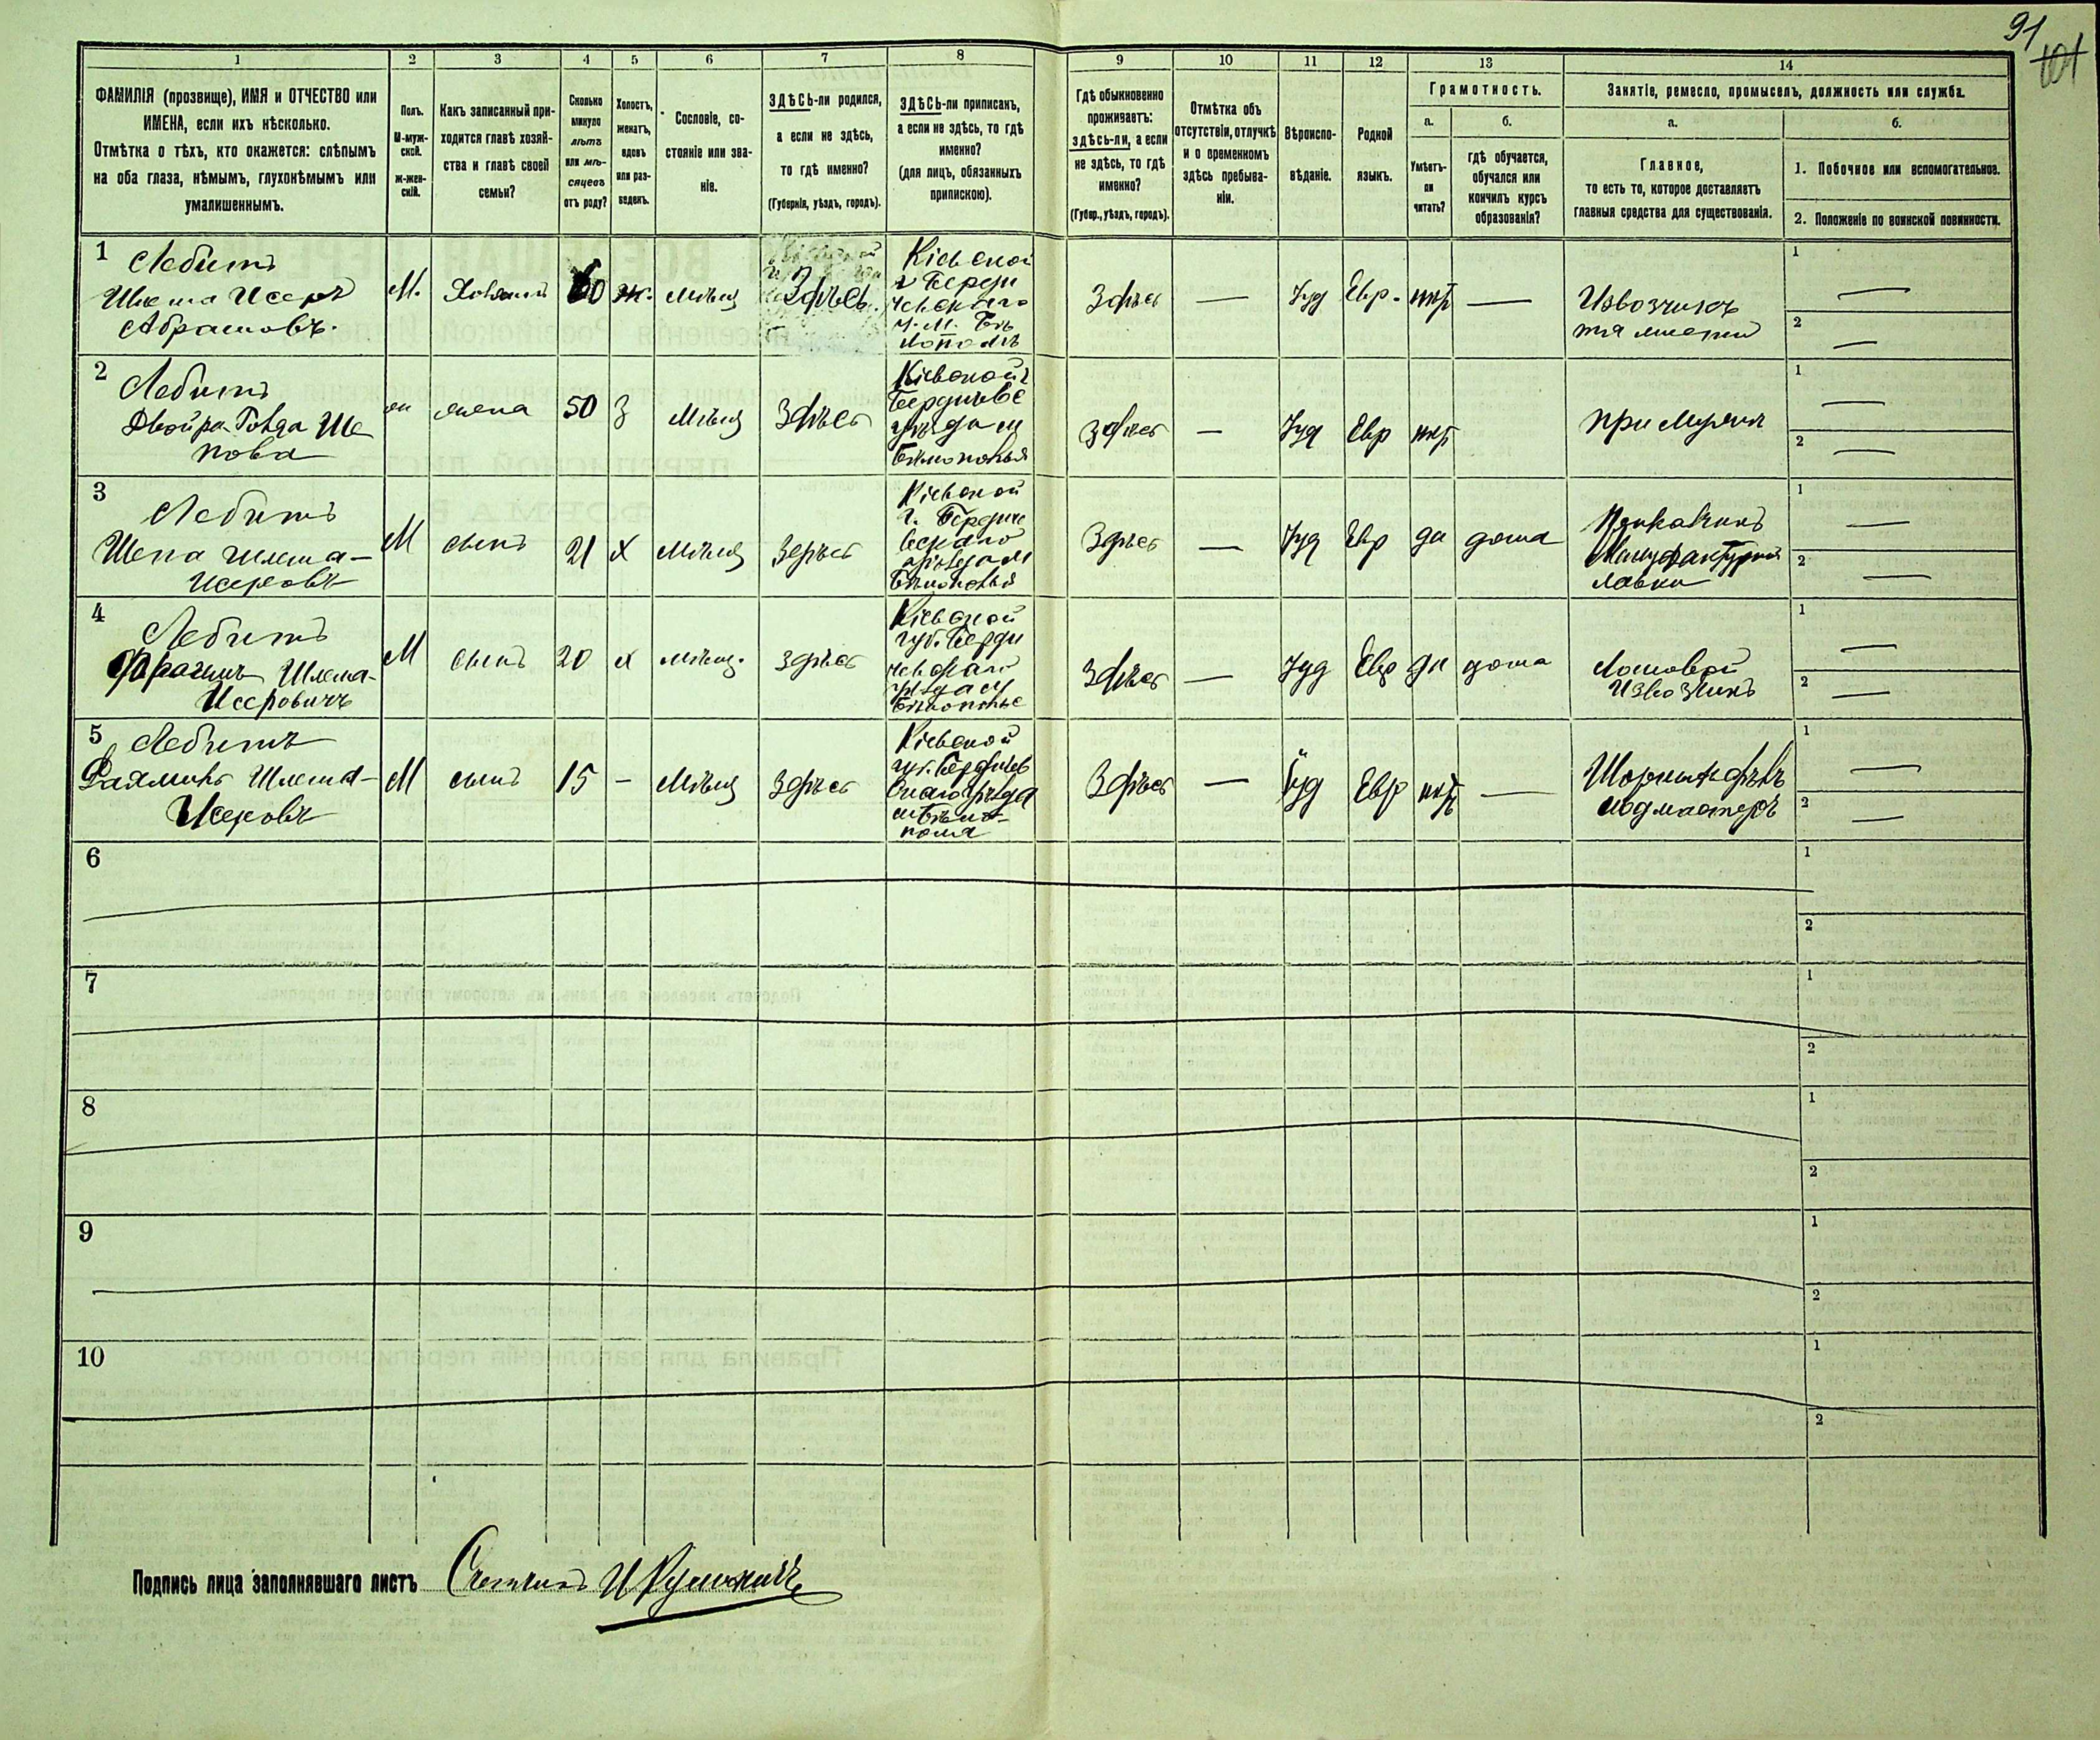 91
101
1
2
3
4
5
6
7
8
9
10
11
12
13
14
ФАМИЛІЯ (прозвище), ИМЯ и ОТЧЕСТВО или
ИМЕНА, если ихъ нѣсколько.
Отмѣтка о тѣхъ, кто окажется: слѣпымъ
на оба глаза, нѣмымъ, глухонѣмымъ или
умалишеннымъ.
Полъ.
М-муж-
ской.
Ж-жен-
скій.
Какъ записанный при-
ходится главѣ хозяй-
ства и главѣ своей
семьи?
Сколько
минуло
лѣтъ
или мѣ-
сяцевъ
отъ роду?
Холостъ,
женатъ,
вдовъ
или раз-
веденъ.
Сословіе, со-
стояніе или зва-
ніе.
ЗДѢСЬ-ли родился,
а если не здѣсь,
то гдѣ именно?
(Губернія, уѣздъ, городъ).
ЗДѢСЬ-ли приписанъ,
а если не здѣсь, то гдѣ
именно?
(для лицъ, обязанныхъ
припискою).
Гдѣ обыкновенно
проживаетъ:
здѣсь-ли, а если
не здѣсь, то гдѣ
именно?
(Губер., уѣздъ, городъ).
Отмѣтка объ
отсутствіи, отлучкѣ
и о временномъ
здѣсь пребыва-
ніи.
Вѣроиспо-
вѣданіе.
Родной
языкъ.
Грамотность.
а.
Умѣетъ-
ли
читать?
б.
гдѣ обучается,
обучался или
кончилъ курсъ
образованія?
Занятіе, ремесло, промыселъ, должность или служба.
а.
Главное,
то есть то, которое доставляетъ
главныя средства для существованія.
б.
1. Побочное или вспомогательное.
2. Положеніе по воинской повинности.
1
Лебитъ
Шлема Исеръ
Абрамовъ.
М.
Хозяинъ
60
ж.
мѣщ
Здѣсь.
Кіевской
г. Берди
чевскаго
у. М. Бѣ
лополъ
Здѣсь
—
Іуд
Евр.
нѣтъ
—
Извозчикъ
1 —
2 —
2
Лебитъ
Двойра Голда Ше
пова
жена
50
З
Мѣщ
Здѣсь
Кіевской г
Бердичевс
уѣзда м
Бѣлополья
Здѣсь
—
Іуд
Евр
нѣтъ
при Мужѣ
1 —
2 —
3
Лебитъ
Шепа Шлема-
Исеровъ
М
сынъ
21
х
Мѣщ
Здѣсь
Кіевской
г. Бердиче
вскаго
уѣзда м
Бѣлополья
Здѣсь
—
Іуд
Евр
да
дома
Прикащикъ
Мануфактурной
лавки
1 —
2 —
4
Лебитъ
Шлема-
Исеровичъ
М
сынъ
20
х
мѣщ.
здѣсь
Кіевской
губ. Берди
чевскаго
уѣзда м
Бѣлополье
Здѣсь
—
Іуд
Евр
да
дома
Ломовой
Извозчикъ
1 —
2 —
5
Лебитъ
Шлема-
Исеровъ
М
сынъ
15
-
Мѣщ
Здѣсь
Кіевской
губ. Бердичев
скаго уѣзда
м Бѣло-
полья
Здѣсь
—
Іуд
Евр
нѣтъ
—
подмастеръ
1 —
2 —
6
1
2
7
1
2
8
1
2
9
1
2
10
1
2
Подпись лица заполнявшаго листъ Счетчикъ